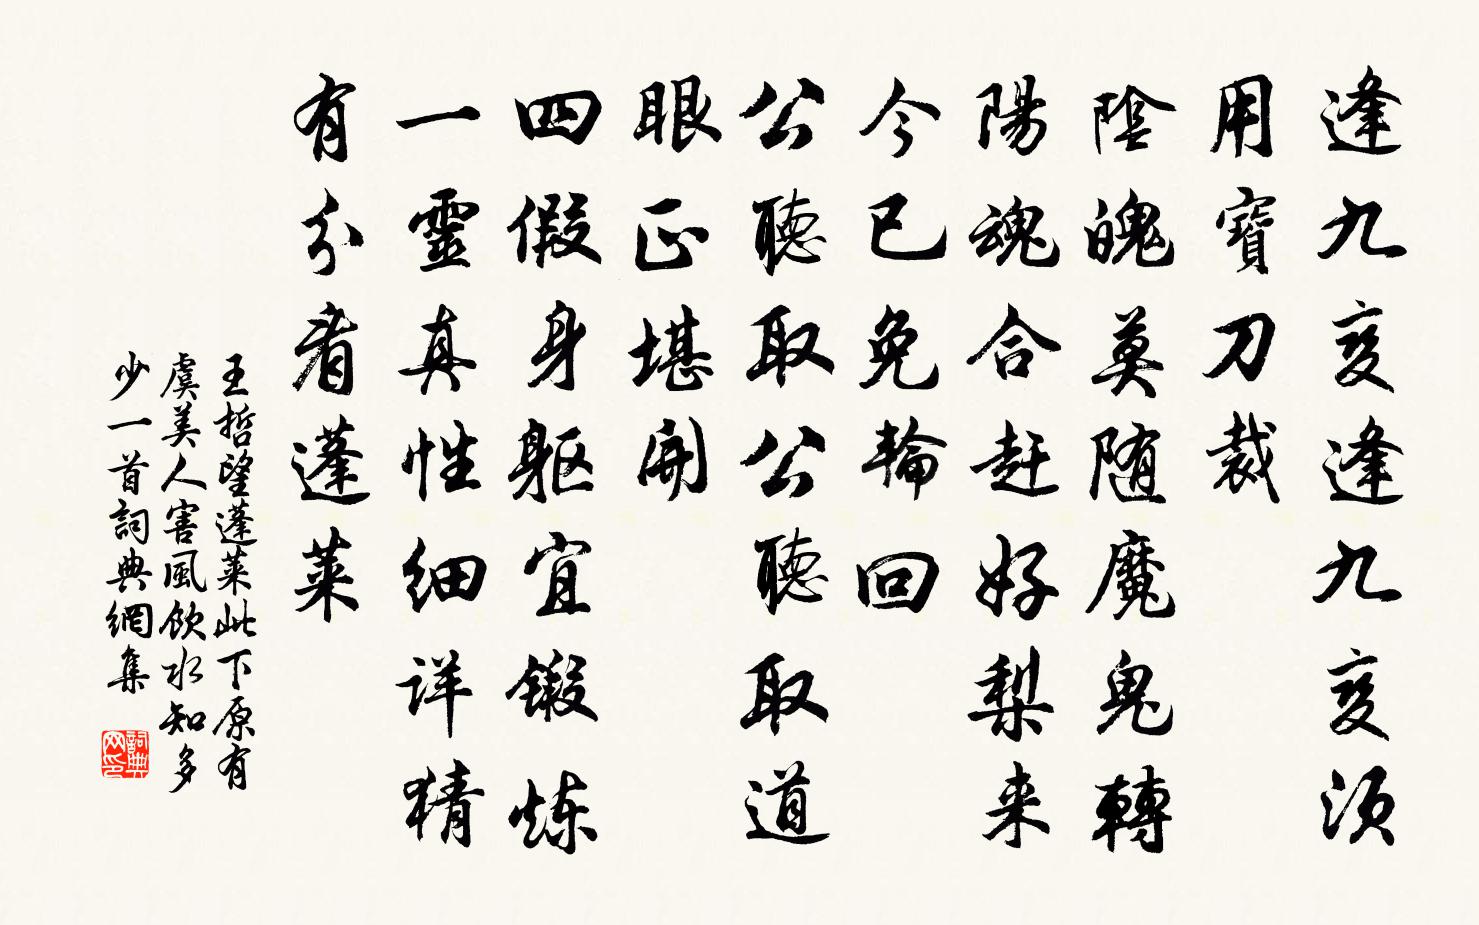 逢九变逢九变須
用寶刀裁
陰魄莫随魔鬼轉
陽魂合赶好梨来
今已免輪回
公聽取公聽取道
眼正堪開
四假身躯宜鍛炼
一靈真性细详猜
有分看蓬莱
王哲望蓬莱此下原有
虞美人害風飲水知多
少一首詞典網集
詞典
网印